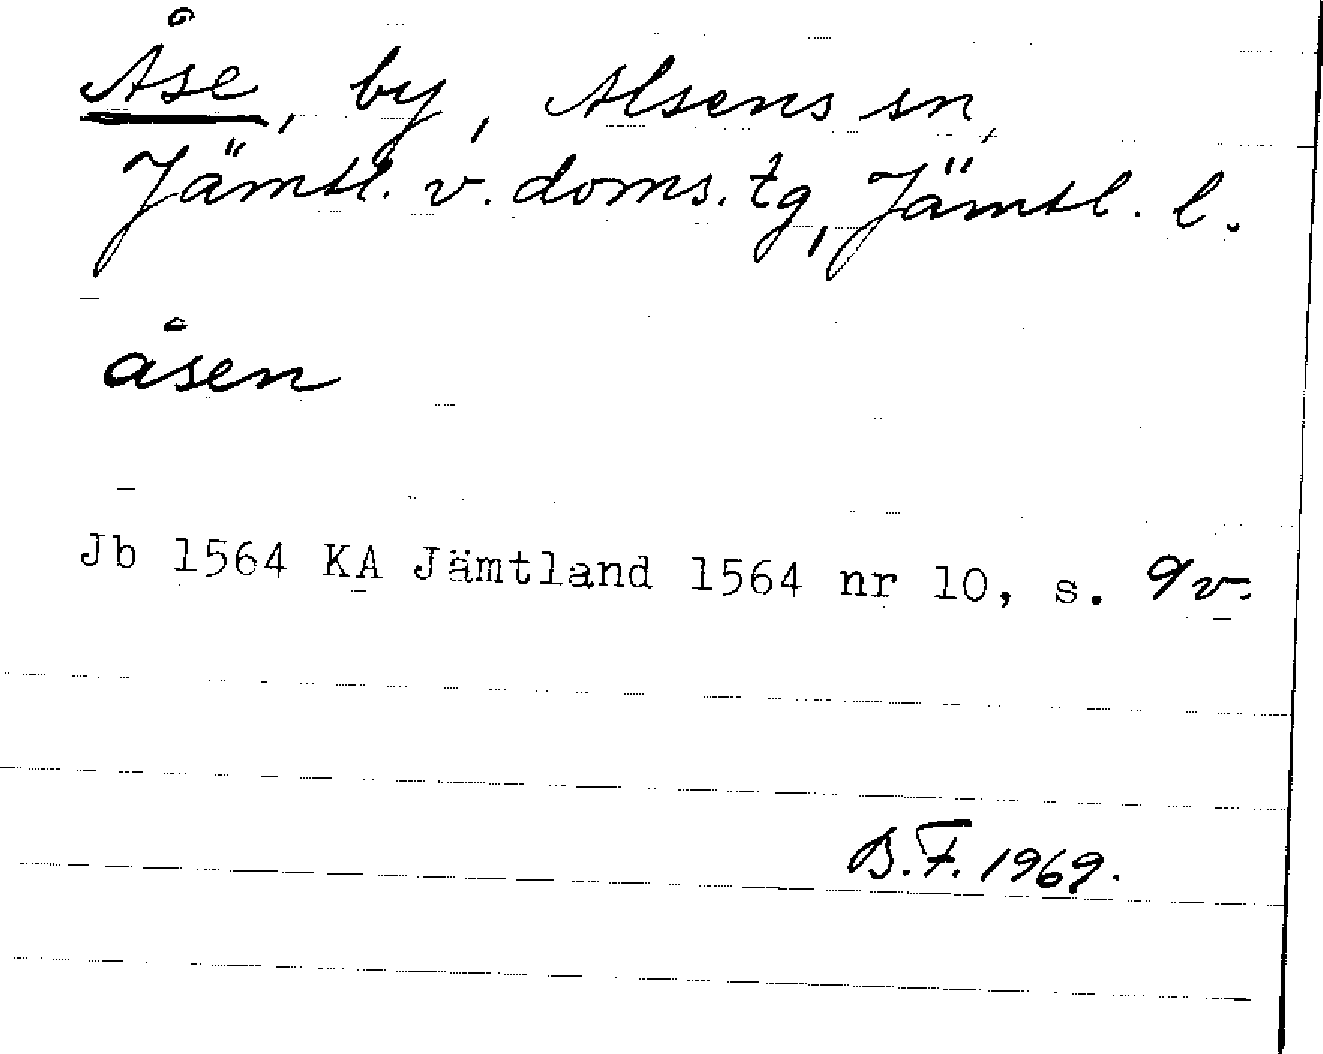 Åse, by, Alsens sn,
Jämtl. v. doms. tg, Jämtl. l.
åsen
Jb 1564 KA Jämtland 1564 nr 10, s. 9v.
B.F. 1969.